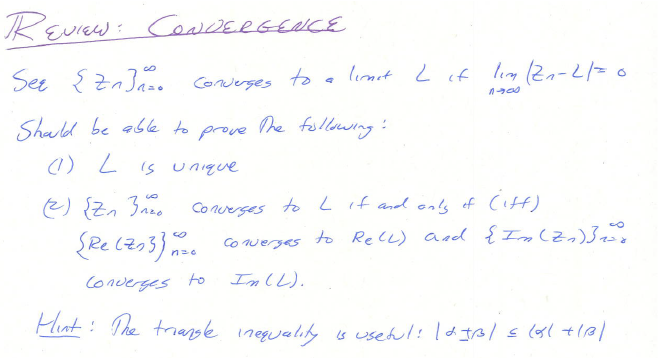 Review: Convergence
Seq {Zn}∞n=0 converges to a limit L if lim n→∞ |Zn-L| = 0
Should be able to prove the following:
(1) L is unique
(2) {Zn}∞n=0 converges to L if and only if (iff)
{Re(Zn)}∞n=0 converges to Re(L) and {Im(Zn)}∞n=0
converges to Im(L).
Hint: The triangle inequality is useful: |α±β| ≤ |α|+|β|